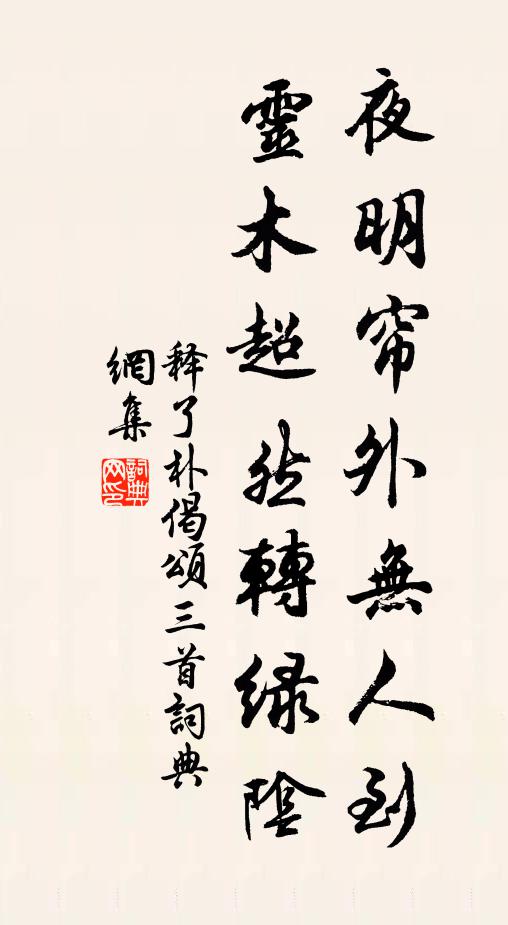 夜明帘外無人到
靈木超然轉緑陰
释了朴偈頌三首詞典
網集
詞典
网印